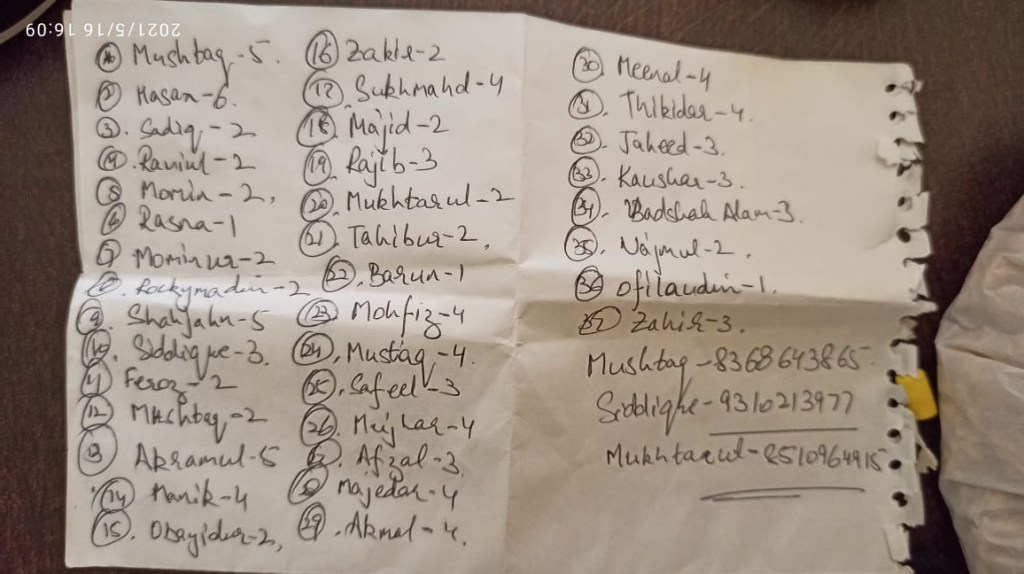 2021/5/16 16:09
1. Mushtaq-5.
2. Hasan-6.
3. Sadiq-2
4. Raniul-2
5. Momin-2,
6. Rasna-1
7. Mominur-2
8. Rockymadin-2
9. Shahjahn-5
10. Siddique-3.
11. Feroz-2
12. Muchtaq-2
13. Akramul-5
14. Manik-4
15. Obayidur-2,
16. Zakir-2
17. Sukhmahd-4
18. Majid-2
19. Rajib-3
20. Mukhtarul-2
21. Tahibur-2,
22. Barun-1
23. Mohfiz-4
24. Mustaq-4.
25. Safeel-3
26. Mujhar-4
Afzal-3.
Majedar-4
29. Akmal-4.
30. Meenal-4
31. Thikidar-4.
32. Jaheed-3.
33. Kaushar-3.
34. Badshah Alam-3.
35. Najmul-2.
36. Ofilaudin-1.
37. Zahir-3.
Mushtaq-8368643865
Siddique-9310213977
Mukhtarul-8510964915